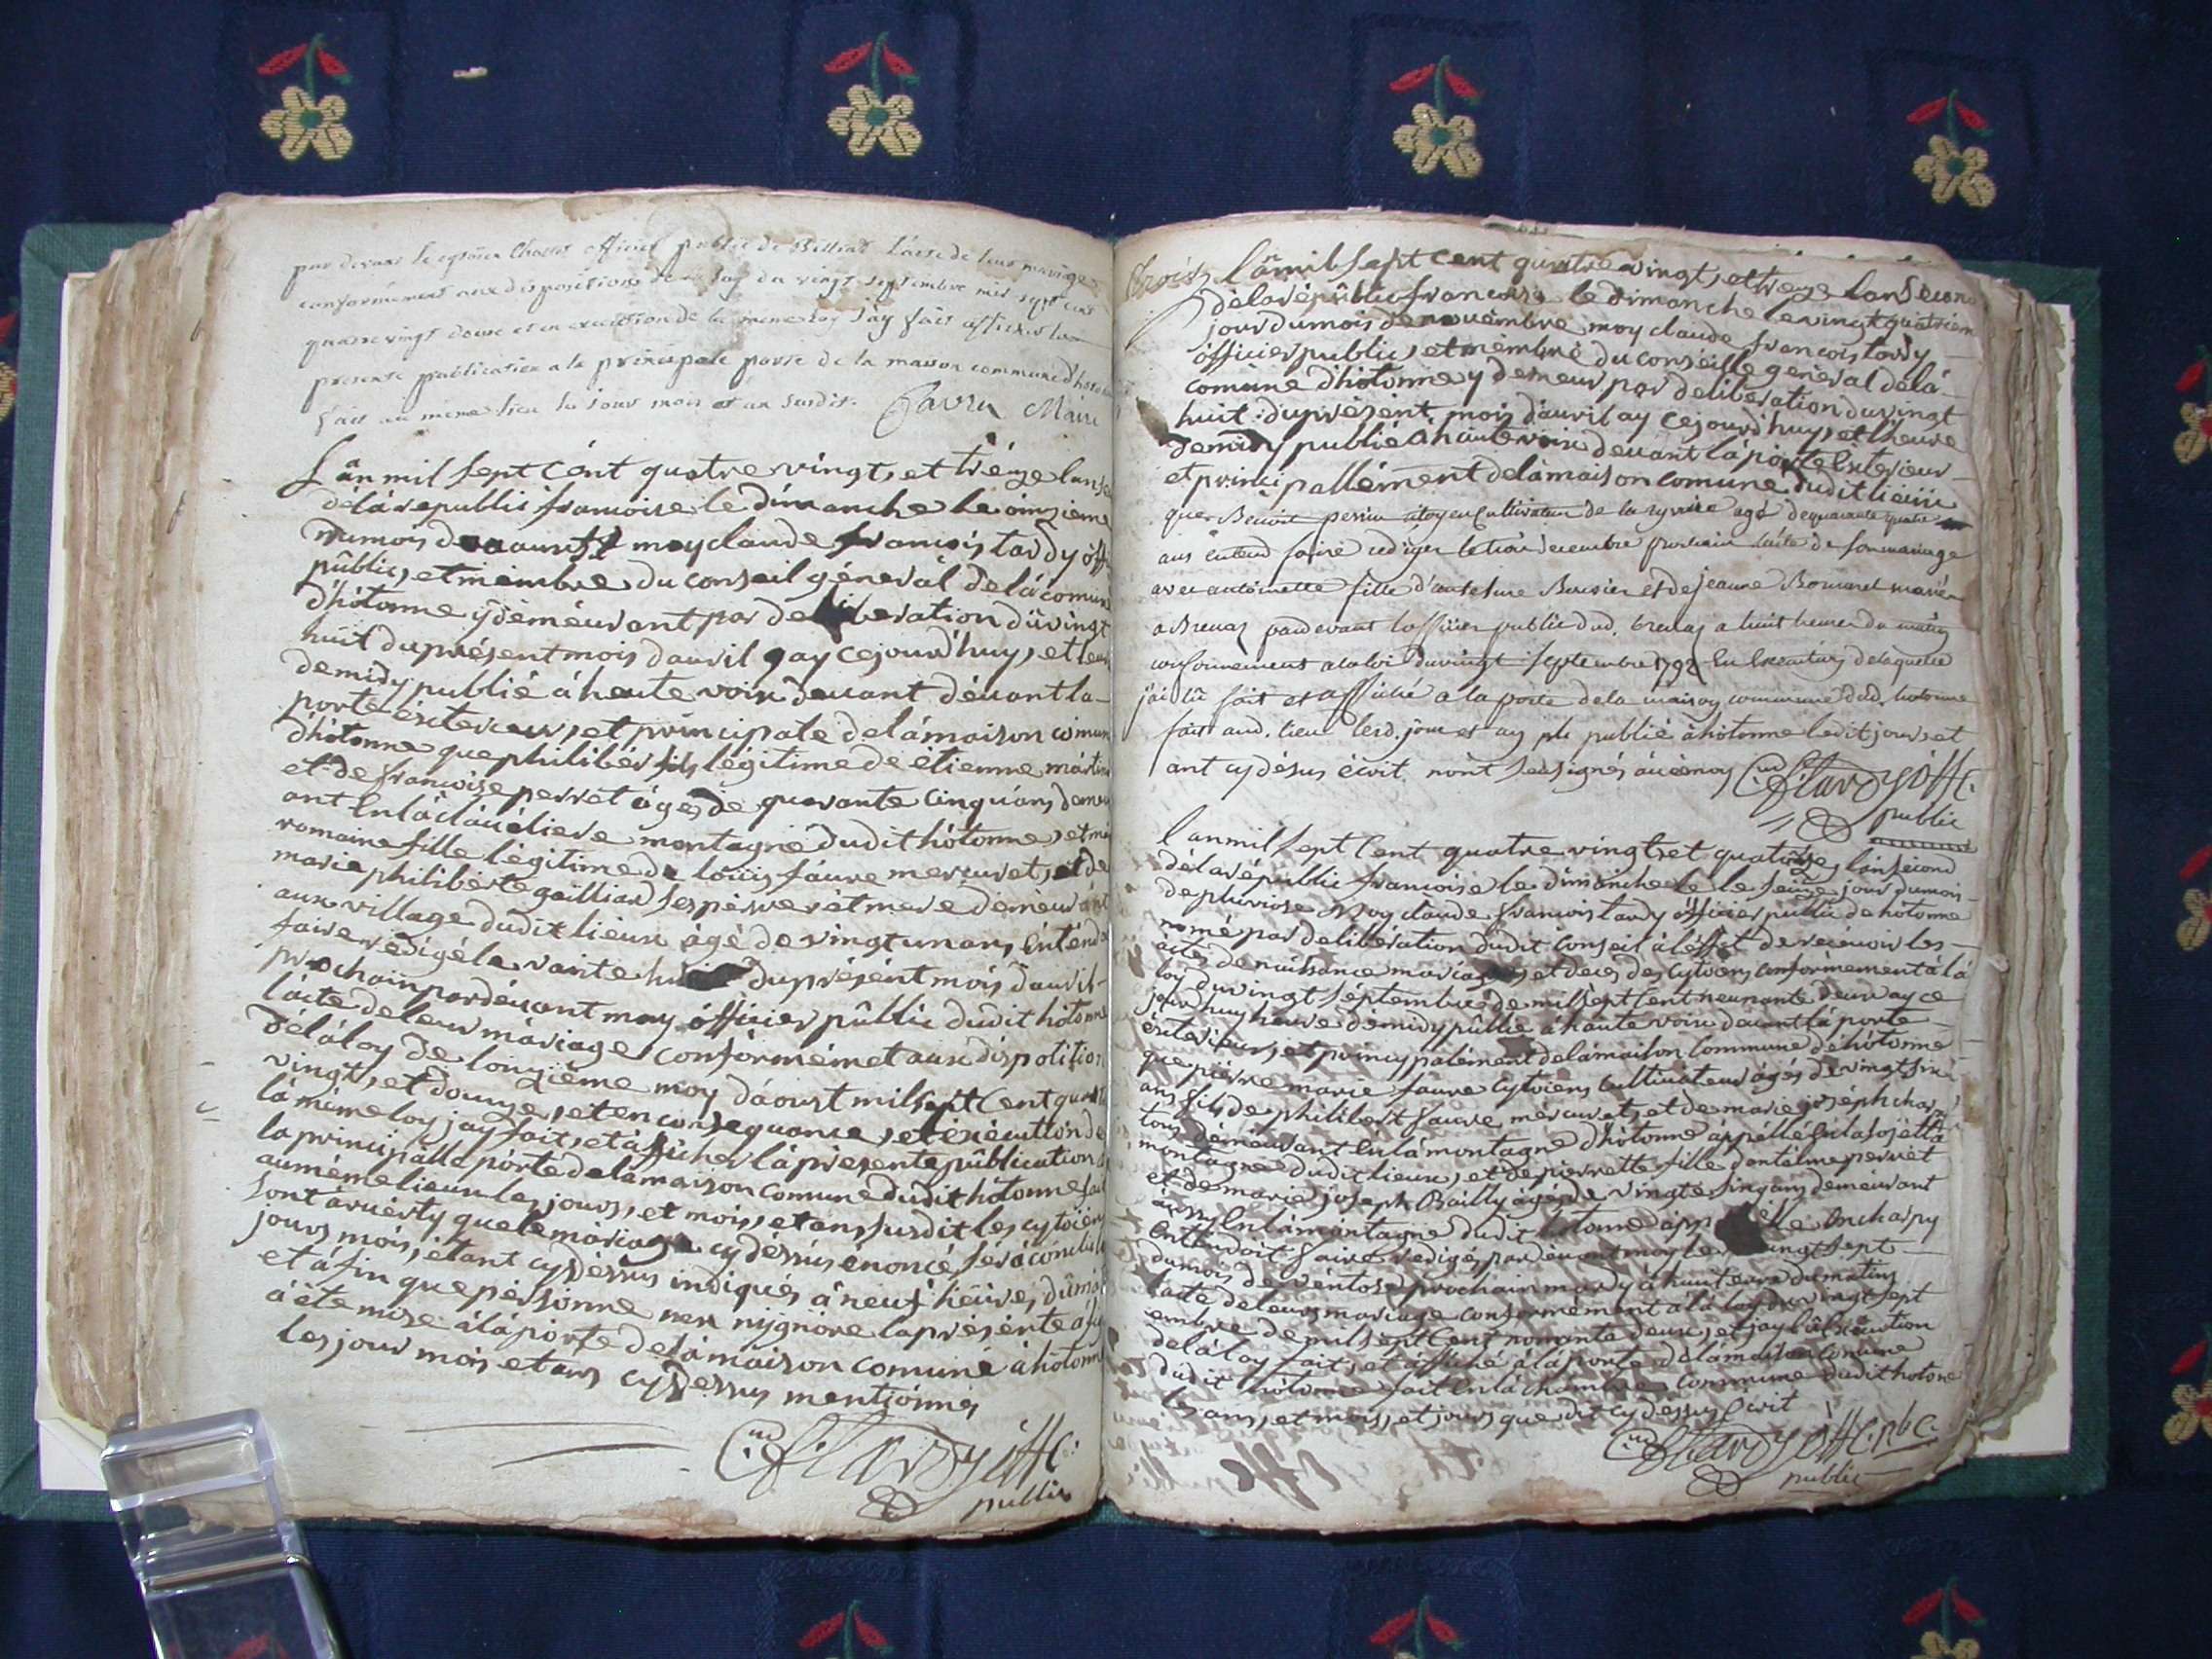 par devant le cytoien Chatot officier public de Billiat l'acte de leur mariage
conformément aux dispositions de la loy du vingt septembre mil sept cent
quatre vingt douze et en execution de la meme loy j'ay fait afficher la
presente publication a la principale porte de la maison commune d'hoto
fait au meme lieu les jour mois et an susdit. Maire
L'an mil sept cent quatre vingts, et tréize l'an
déla républic francoise le dimanche le onzieme
du mois moy claude francois tardy offi
públic, et mémbre du conseil géneral dela comun
d'hotonne y démeurant par deliberation du vingt
huit duprésent mois d'avril ay cejourd'huy, et heur
demidy publié á haute voix devant dévant la
porte éxterieur, et principale delámaison comun
d'hotonne que philibér fils légitime de étienne martin
et de francoise perret áges de quarante cinqu ans demeu
ant En la montagne dudit hotonne, et
romaine fille légitime de loüis faure mercuret, et de
marie philiberte gailliard ses pére et mere demeurant
aux village dudit lieux ágé de vingt un ans, Entend
faire redigé le vainte duprésént mois d'avril
prochain pardévant moy officier públic dudit hotonne
lácte de leur máriage conformémet aux dispotition
délá loy de longiéme moy d'áoust mil sept Cent quat
vingt, et douze, et en consequance, et éxécution de
lá méme loy jay fait, et áfficher lá présente públication
la principálle pórte delámaison comune dudit hotonne fait
au méme lieux les jours, et mois, et ans susdit les cytoien
sont avérty que le máriage cy déssus énoncé, sera
jours mois, étant cy déssus indiqués á neuf héures du
et á fin que pérsonne nen nÿgnore la présénte
á été mise álá pórte delá máison comune á hotonne
les jour mois et ans cy dessus mentionnés
public
L'an mil sept cent quatre vingt, et treize l'an second
déla républic francoise le dimanche le vingt quatriem
jour du mois de novembre moy claude francois tardy
officier public, et mémbre du conseille géneral délá
comune d'hotonne y demeur par deliberation du vingt
huit duprésent mois d'avril ay cejourd'huy, et l'heure
demidy publié á haute voix devant lá porte Exterieur
et princi pallément delámaison comune dudit lieux
que Benoit perrin citoyen Cultivateur de la agé de quarante quatre
ans entend faire rediger le trois decembre prochain l'acte de son mariage
avec antoinette fille d'anthelme et de jeanne mariés
a Brenaz pardevant l'officier public dud. brenaz a huit heures du matin
conformement a la loi du vingt septembre 1792 En Execution de laquelle
j'ai lu fait et affiché a la porte de la maison commune dud. hotonne
fait aud. lieu lesd. jour et an publié á hotonne ledit jours, et
ant cy désus écrit
public
L'an mil sept Cent quatre vingts, et quatorze, l'an sécond
délá républic francoise le dimanche le le seize jour du mois
de pluviose moy claude francois tardy officier public de hotonne
nomé par deliberation dudit conseil á léffet de recevoir les
actes de naissance mariages, et deces des cytoiens conformément á lá
loy du vingt séptembre de mil sept cent nennante deux ay ce
jourd'huy heure demidy públié á haute voix devant lá porte
éxterieur, et princypalément delámaison Commune de hotonne
que piérre marie faure cytoiens cultivateur ágés de vingt six
ans fils de philibert faure mércuret, et de marie joséph
tous démeurant En lá montagne d'hotonne áppéllé
montagne dudit lieux, et de pierrette fille d'antelme perret
et de marie joseph Bailly ágés de vingte sinq ans demeurant
aussy En lá montagne dudit hotonne
Entendoit faire redigés par devant moy le vingt sept
du mois de ventose prochain mardy á huit eure du matins
lácte de leurs mariage conformément á lá loy du vingt sept
embre de mil sept Cent nonnante deux, et
delá loy fait, et affiché á lá porte delámaison comune
dudit hotonne fait En lá chambre commune dudit hotone
les ans, et mois, et jours que dit cy dessus écrit
public